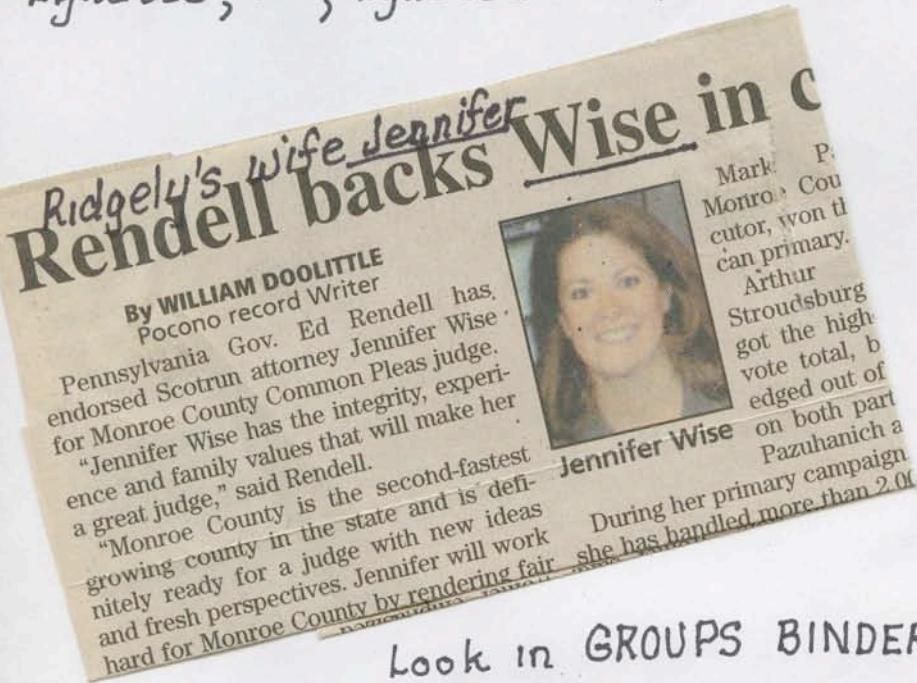 Ridgely's wife Jennifer
Rendell backs Wise in
By WILLIAM DOOLITTLE
Pocono record Writer
Pennsylvania Gov. Ed Rendell has
endorsed Scotrun attorney Jennifer Wise
for Monroe County Common Pleas judge.
"Jennifer Wise has the integrity, experi-
ence and family values that will make her
a great judge," said Rendell.
"Monroe County is the second-fastest
growing county in the state and is defi-
nitely ready for a judge with new ideas
and fresh perspectives. Jennifer will work
hard for Monroe County by rendering fair
Jennifer Wise
Mark
Monroe Cou
cutor, won
can primary.
Arthur
Stroudsburg
got the high
vote total, b
edged out of
on both part
Pazuhanich a
During her primary campaign
she has handled more than
Look in GROUPS BINDER